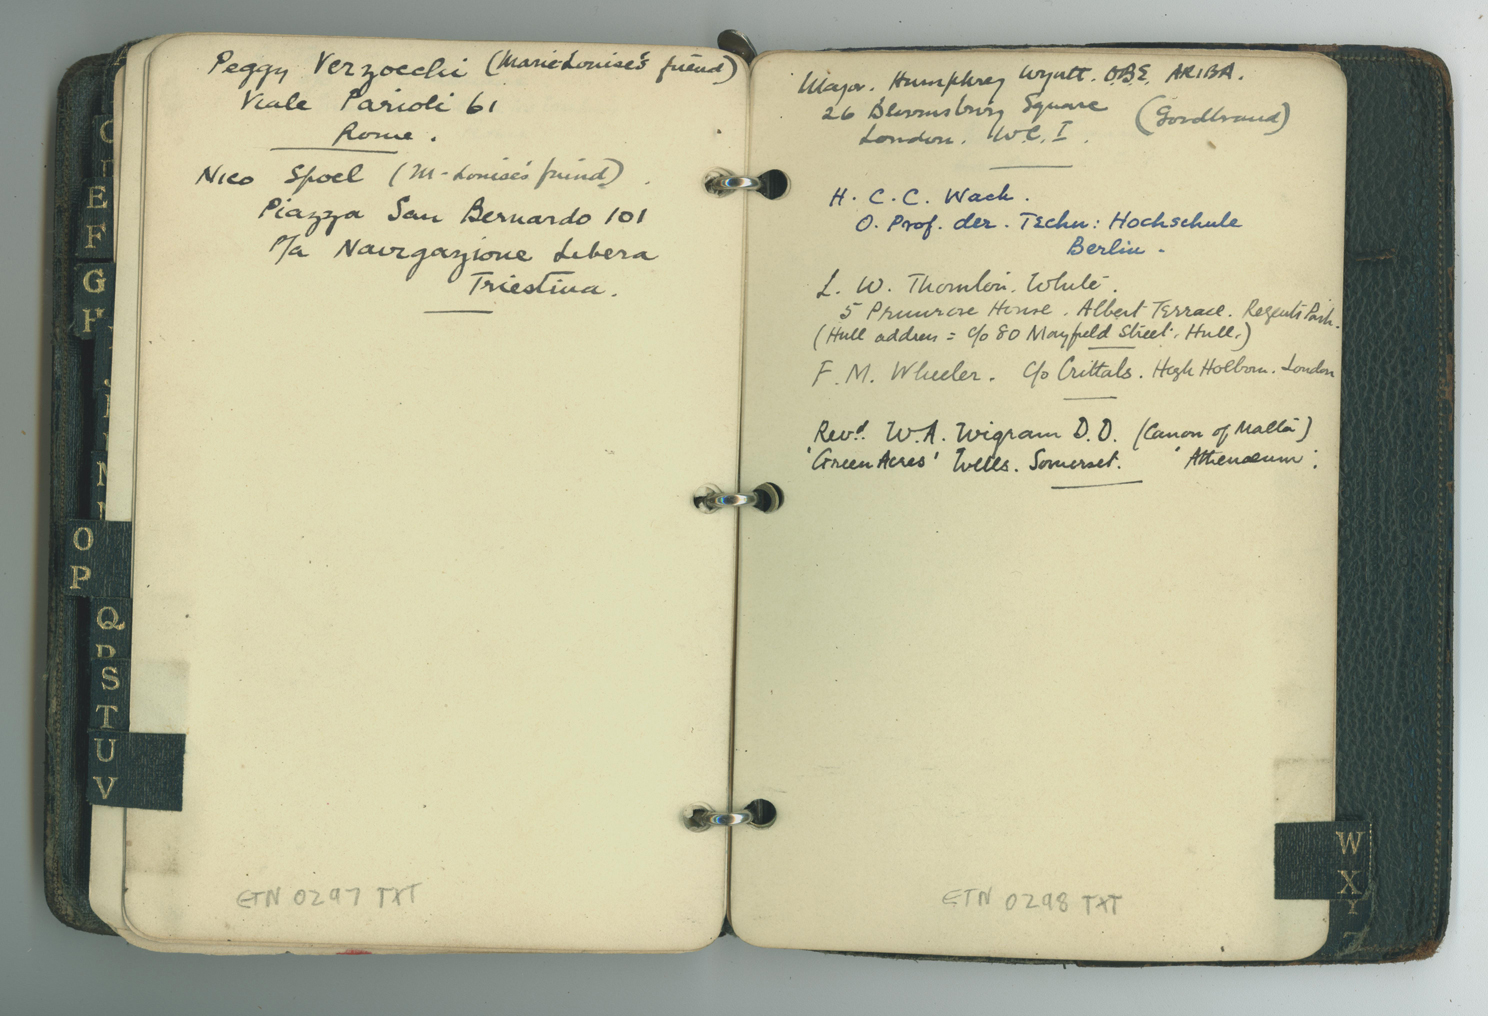 Peggy Verzocchi (Marie Louise's friend)
Viale Parioli 61
Rome.
Nico Spoel (M-Louise's friend).
Piazza San Bernardo 101
P/a Navigazione Libera
Triestina.
ETN 0297 TXT
C
D
E
F
G
H
J
N
O
P
Q
R
S
T
U
V
Major. Humphrey Wyatt. OBE. ARIBA.
26 Bloomsbury Square (Goodbrand)
London. W.C.I.
H. C. C. Wach.
O. Prof. der. Techn: Hochschule
Berlin -
L. W. Thornton. White.
5 Primrose House. Albert Terrace. Regents Park.
(Hull address = c/o 80 Mayfield Street. Hull.)
F. M. Wheeler. c/o Crittals. High Holborn. London
Revd. W.A. Wigram D.D. (Canon of Malta)
'Green Acres' Wells. Somerset. 'Athenaeum'.
ETN 0298 TXT
W
X
Y
Z